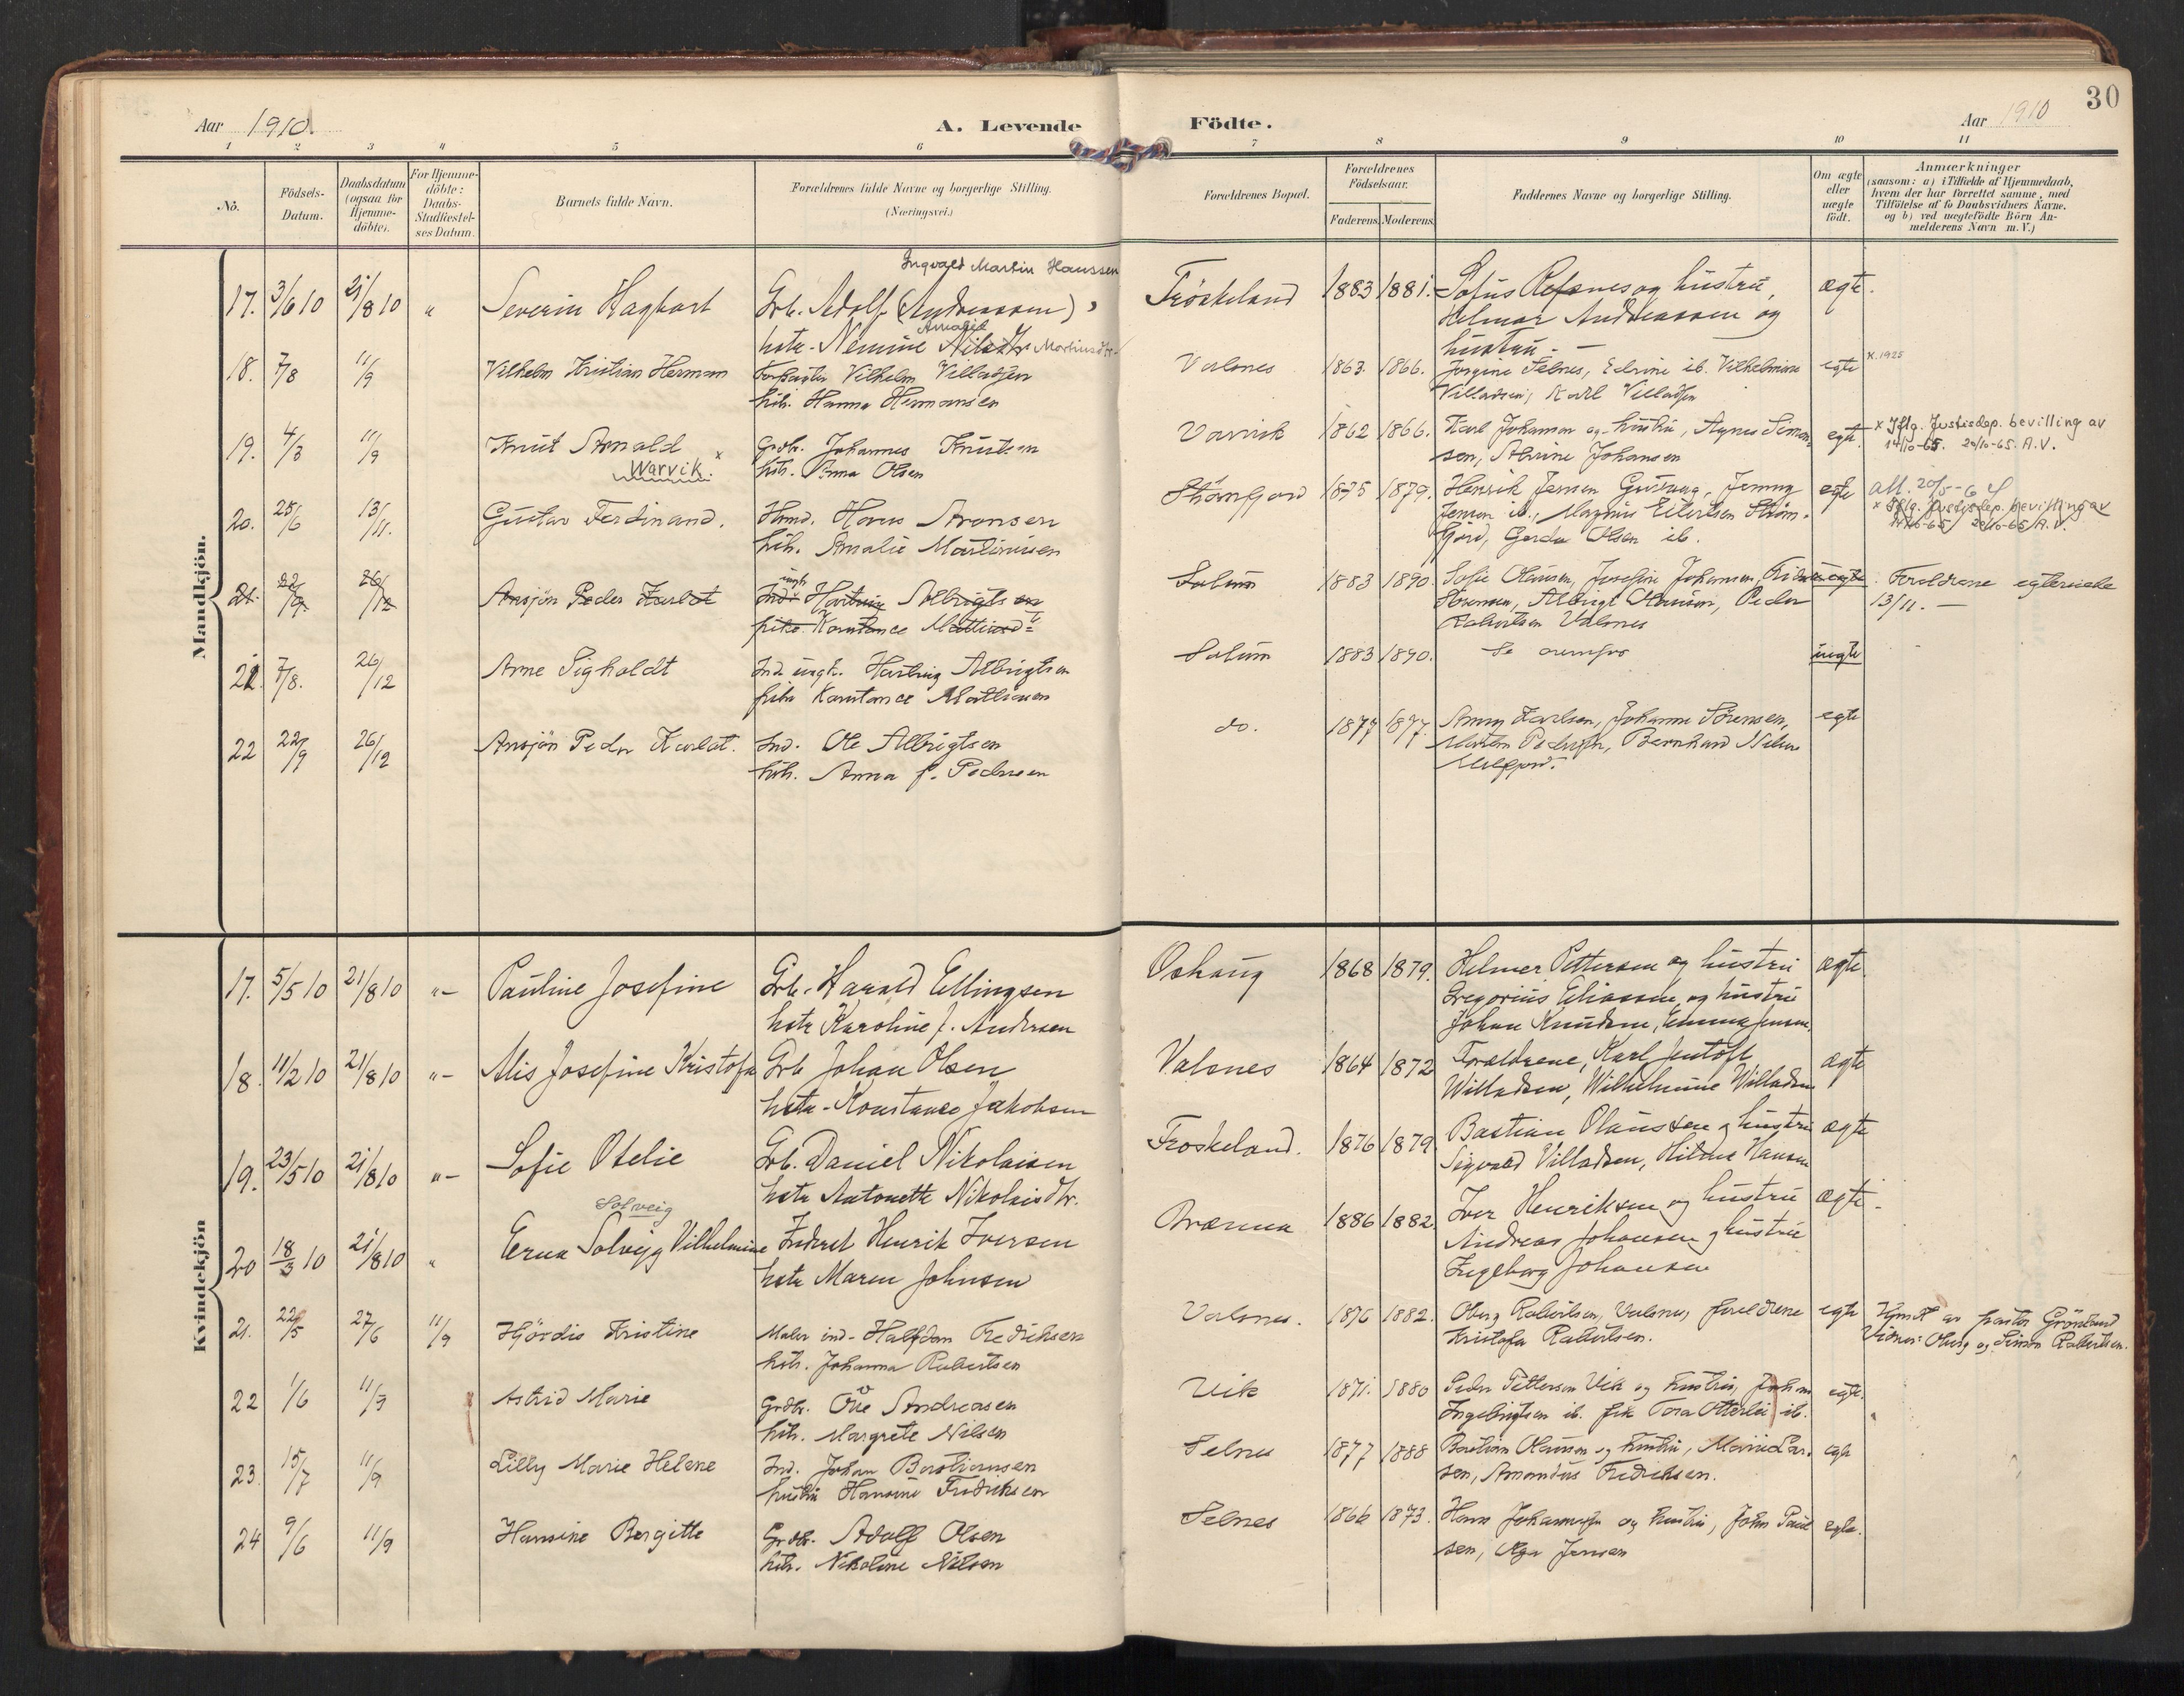 30
Aar 1910. A. Levende Födte. Aar 1910
1 2 3 4 5 6 7 8 9 10 11
No.
Födsels-
Datum.
Daabsdatum
(ogsaa for
Hjemme-
döbte).
For Hjemme-
döbte:
Daabs-
Stadfæstel-
ses Datum.
Barnets fulde Navn.
Forældrenes fulde Navne og borgerlige Stilling.
(Næringsvei.)
Forældrenes Bopæl.
Forældrenes
Födselsaar.
Faderens. Moderens.
Faddernes Navne og borgerlige Stilling.
Om ægte
eller
uægte
födt.
Anmærkninger
(saasom: a) i Tilfælde af Hjemmedaab,
hvem der har forrettet samme, med
Tilföielse af to Daabsvidners Navne.
og b) ved uægtefödte Börn An-
melderens Navn m. V.)
Mandkjön.
Ingvald Martin Hanssen
17. 3/6 10 21/8 10 " Severin Hagbart Grb. Adolf (Andreassen) Fröskeland 1883 1881. Sofus Refsnes og hustru, ægte.
Helmar Andreassen og
Amalie
hstr. Nemine Nilsdtr Martinsdtr.
hustru. —
18. 7/8 11/9 Vilhelm Kristian Herman Forpagter Vilhelm Villadsen Valsnes 1863 1866. Jörgine Selnes, Edvine ib. Vilhelmine egte K. 1925
hstr. Hanna Hermansen Villadsen, Karl Villadsen
19. 4/3 11/9 Knut Arnald x Grdbr. Johannes Knutsen Varvik 1862 1866. Karl Johansen og hustru, Agnes Simon- egte. x Iflg. Justisdep. bevilling av
14/10-65. 20/10-65. A.V.
Warvik. hstr. Anna Olsen sen, Alvine Johansen
20. 25/6 13/11. Gustav Ferdinand. Hmd. Hans Aronsen Strömfjord 1875 1879. Henrik Jensen, Jenny egte att. 20/5-6
x Iflg. Justisdep. bevilling av
hstr. Amalie Martinusen Jensen ib., Magnus Eilertsen Ström-
fjord, Gerda Olsen ib.
21. 22/9. 26/12 Ansjön Peder Karlot ungk.
Ind. Hartvig Albrigtsen Salum 1883 1890. Sofie Olausen, Josefine Johansen, uegte. Foreldrene egteviede
13/11. —
pike Konstance Sörensen, Albrigt Olausen, Peder
Robertsen Valsnes
21. 7/8. 26/12 Arne Sigholdt Ind. ungk. Hartvig Albrigtsen Salum 1883 1890. Se ovenfor uegte
pike Konstance Mathisen
22 22/9 26/12 Ansjön Peder Karlot. Ind. Ole Albrigtsen do. 1877 1877. Anny Karlsen, Johanna Sörensen, egte
hstr. Anna f. Pedersen Martin Pedersen, Bernhard Nilsen
Kvindekjön
17. 5/5 10 21/8 10 "– Pauline Josefine Grb. Harald Ellingsen Oshaug 1868 1879. Helmer Pettersen og hustru ægte
hstr Karoline f. Andersen Gregorius Eliassen og hustru
Johan Knudsen, Emma Jensen.
18. 11/2 10 21/8 10 "– Alis Josefine Kristofa Grb Johan Olsen Valsnes 1864 1872 Forældrene, Karl Jentoft ægte
hstr. Konstance Jakobsen Willadsen, Wilhelmine Willadsen
19. 23/5 10 21/8 10 "– Sofie Otelie Grb. Daniel Nikolaisen Froskeland. 1876 1879 Bastian Olaussen og hustru ægte
hstr Antonette Nikolaisdtr. Sigvald Villadsen, Hilda Hansen
Solveig
20 18/3 10 21/8 10 " Erna Solveig Vilhelmine Inderst Henrik Iversen Brænna 1886 1882. Iver Henriksen og hustru ægte.
hstr Maren Johnsen Andreas Johansen og hustru
Ingeborg Johansen
21. 22/5 27/6 11/9 Hjördis Kristine Maler ind. Halfdan Fredriksen Valsnes. 1876 1882. Oberg Robertsen, Valsnes, foreldrene egte Hjmdt. av pastor Grönlund
hstr. Johanna Robertsen Kristofa Robertsen. Vidner: Oberg og Simon Robertsen.
22 1/6 11/9 Astrid Marie Grdbr. Ove Andreasen Vik 1871. 1880 Peder Pettersen Vik og hustru, egte.
hstr. Margrete Nilsen Ingebrigtsen ib. pik Tora Otterlei ib.
23 15/7 11/9 Lilly Marie Helene Ind. Johan Bastiansen Selnes 1877 1888 Bastian Olausen og hustru, Marie Lar- egte
hustru Hansine Fredriksen sen, Amandus Fredriksen.
24 9/6 11/9 Hansine Bergitte Grdbr. Adolf Olsen Selnes 1866 1873. Hans Johannesen og hustru, John Paul- egte.
hstr. Nikoline Nilsen sen, Aga Jensen